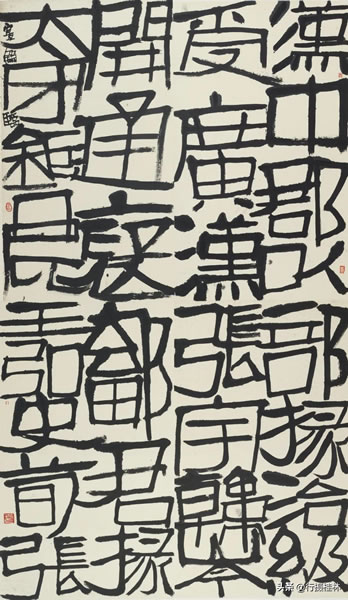 漢中郡以部掾冶級
受廣漢張宇韓岑
開通褒鄐君掾
太守王弘史荀張
头条 @行摄桂林